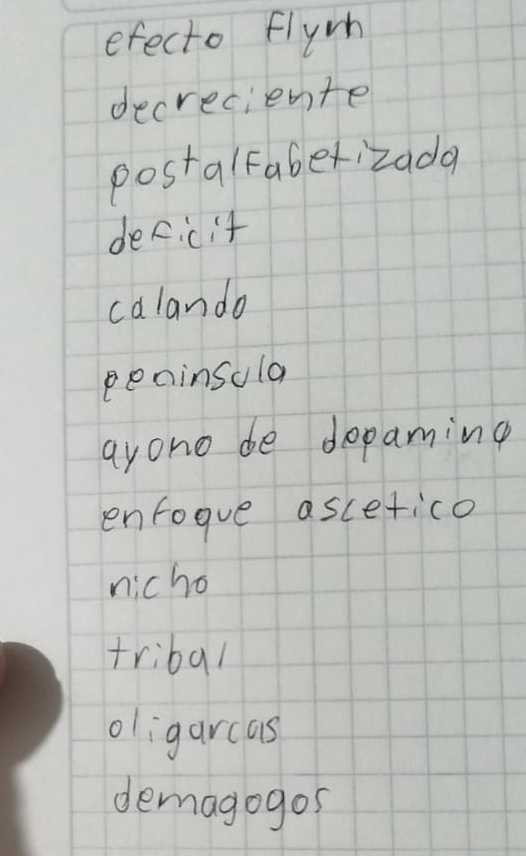 efecto Flynn
decreciente
postalfabetizada
deficit
calando
peninsula
ayono de dopamina
enfoque ascetico
nicho
tribal
oligarcas
demagogos